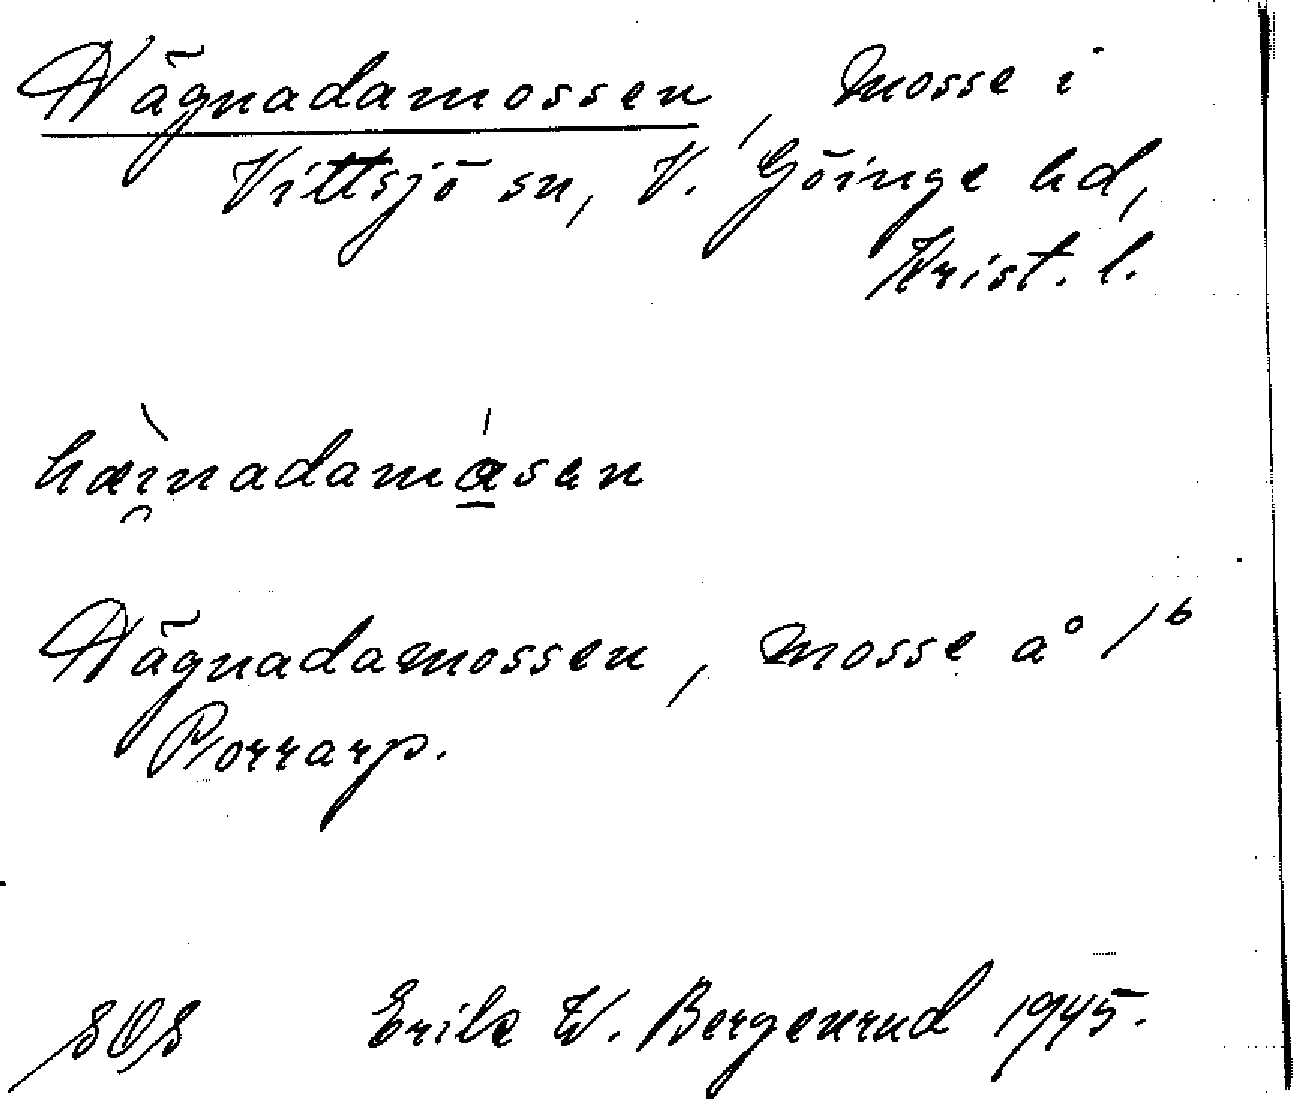 Hägnadamossen, Mosse i
Vittsjö sn, V. Göinge hd,
Krist. l.
hæi̯nadamåsen
Hägnadamossen, Mosse å 1⁶
Porrarp.
SOS Erik W. Bergenrud 1945.